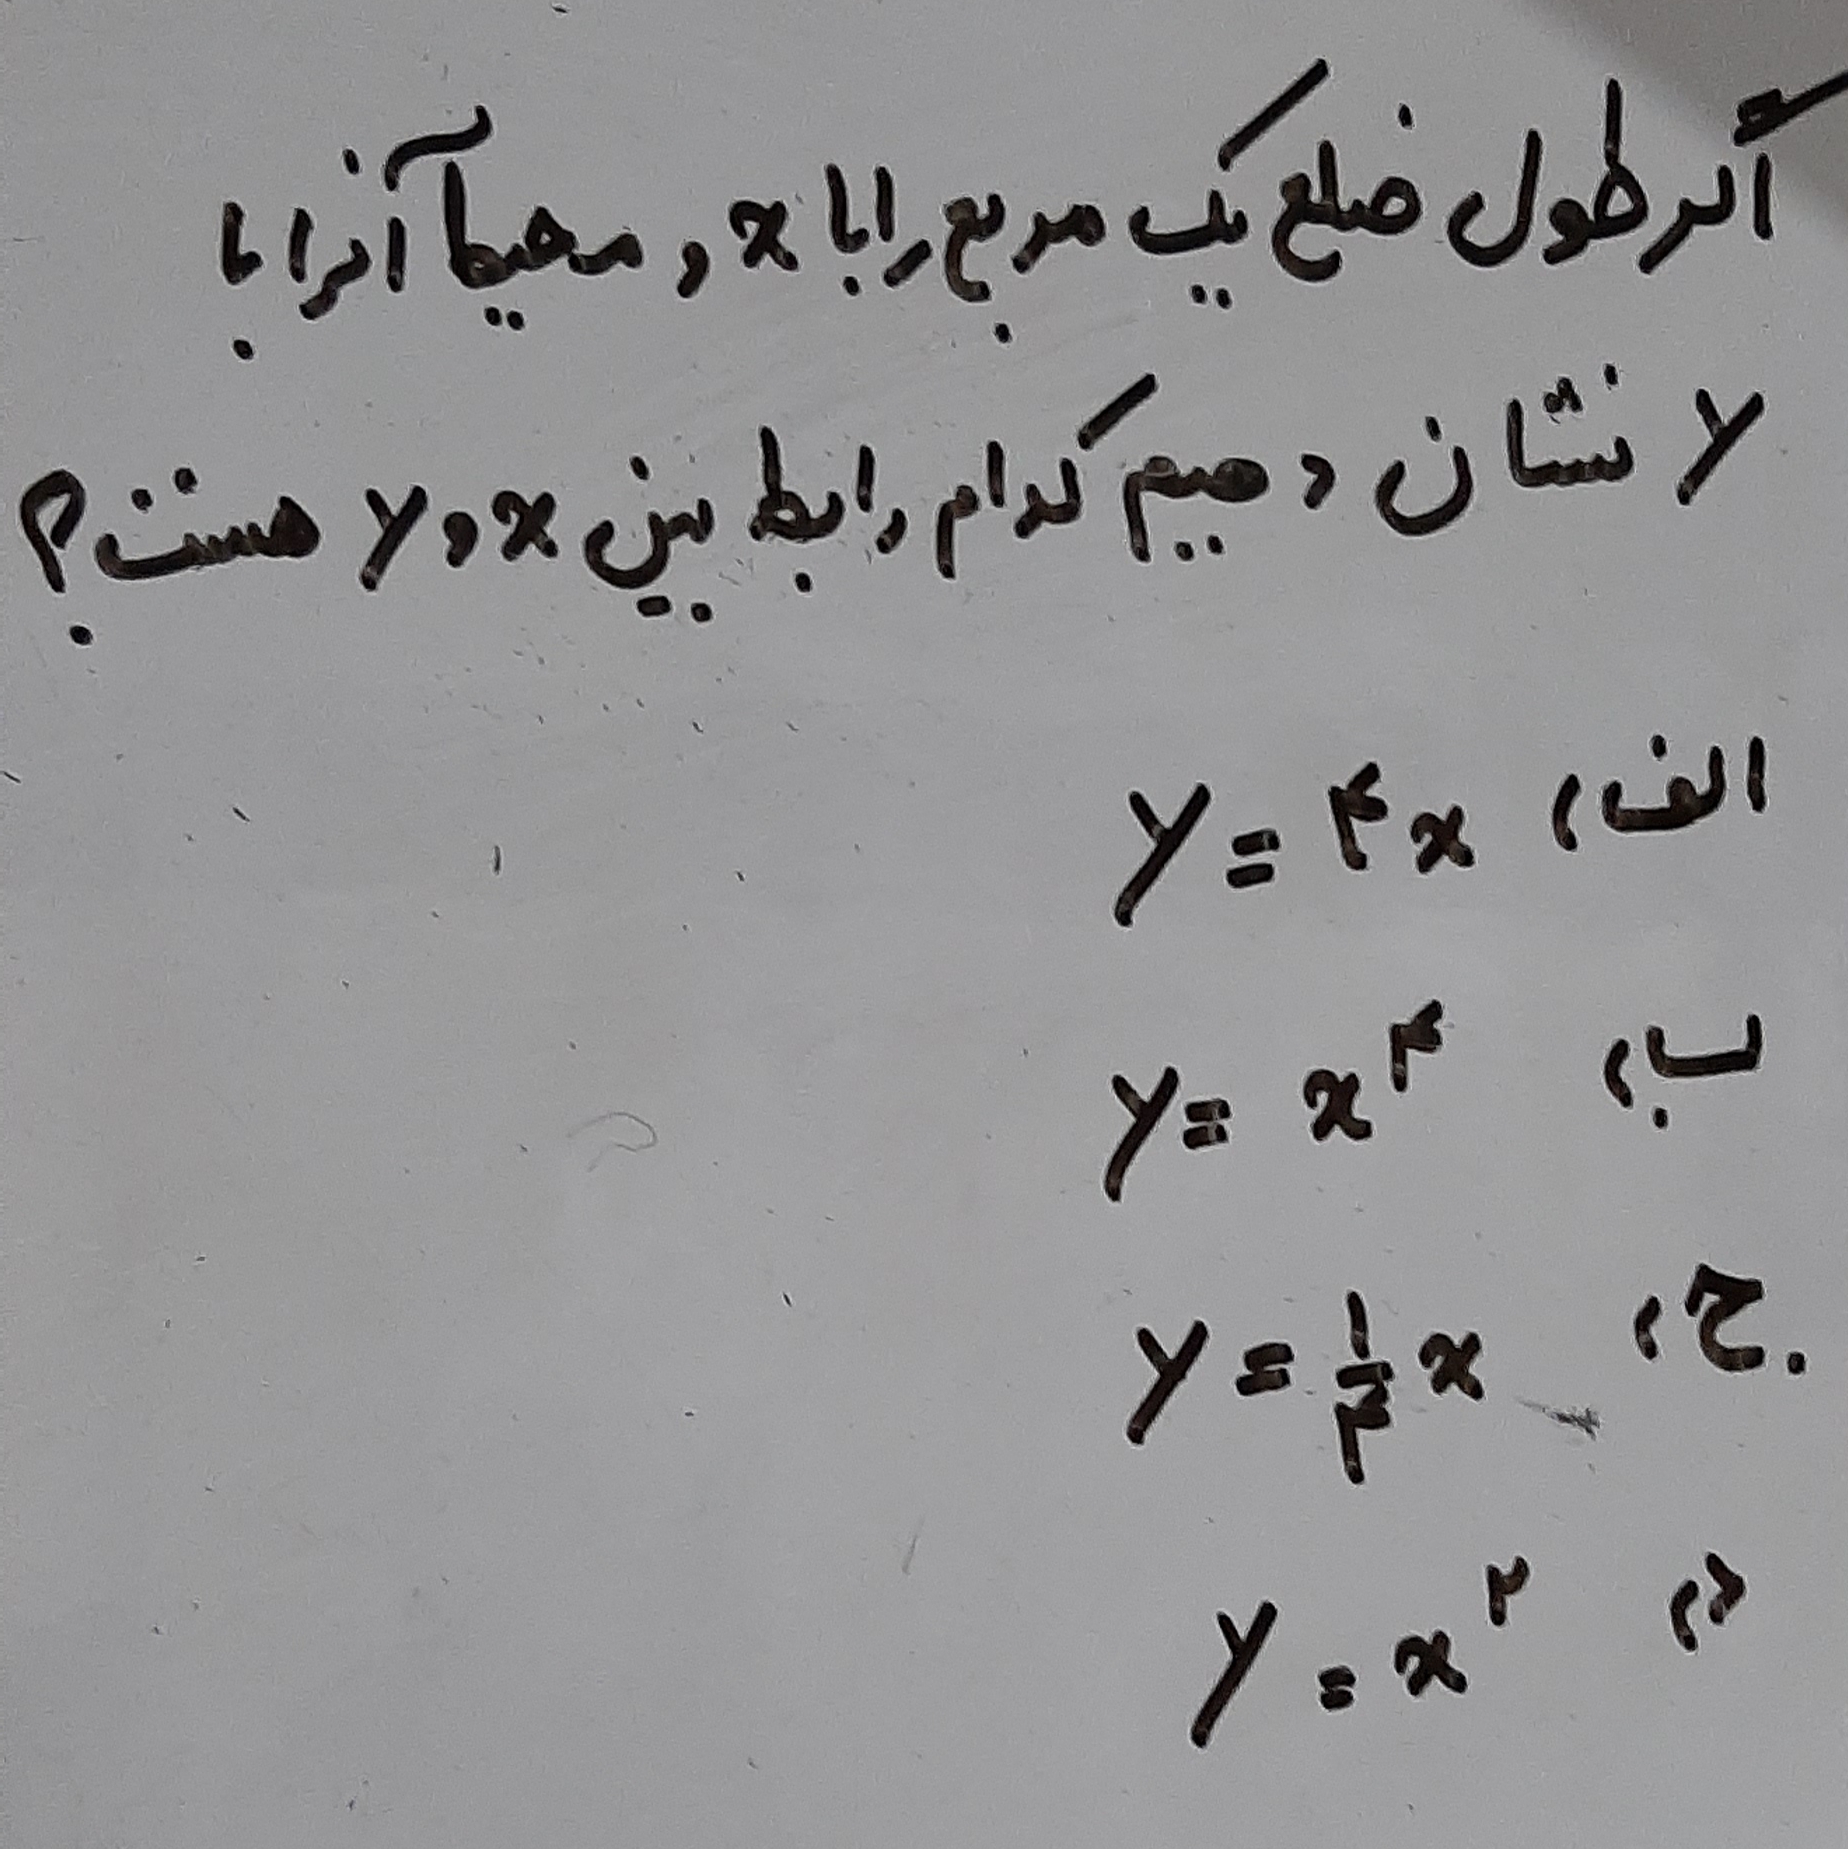 اگر طول ضلع یک مربع را با x و محیط آنرا با
y نشان دهیم کدام رابط بین x و y هست؟
الف) y = ۴x
ب) y = x^۴
ج) y = ۱/۴ x
د) y = x^۲